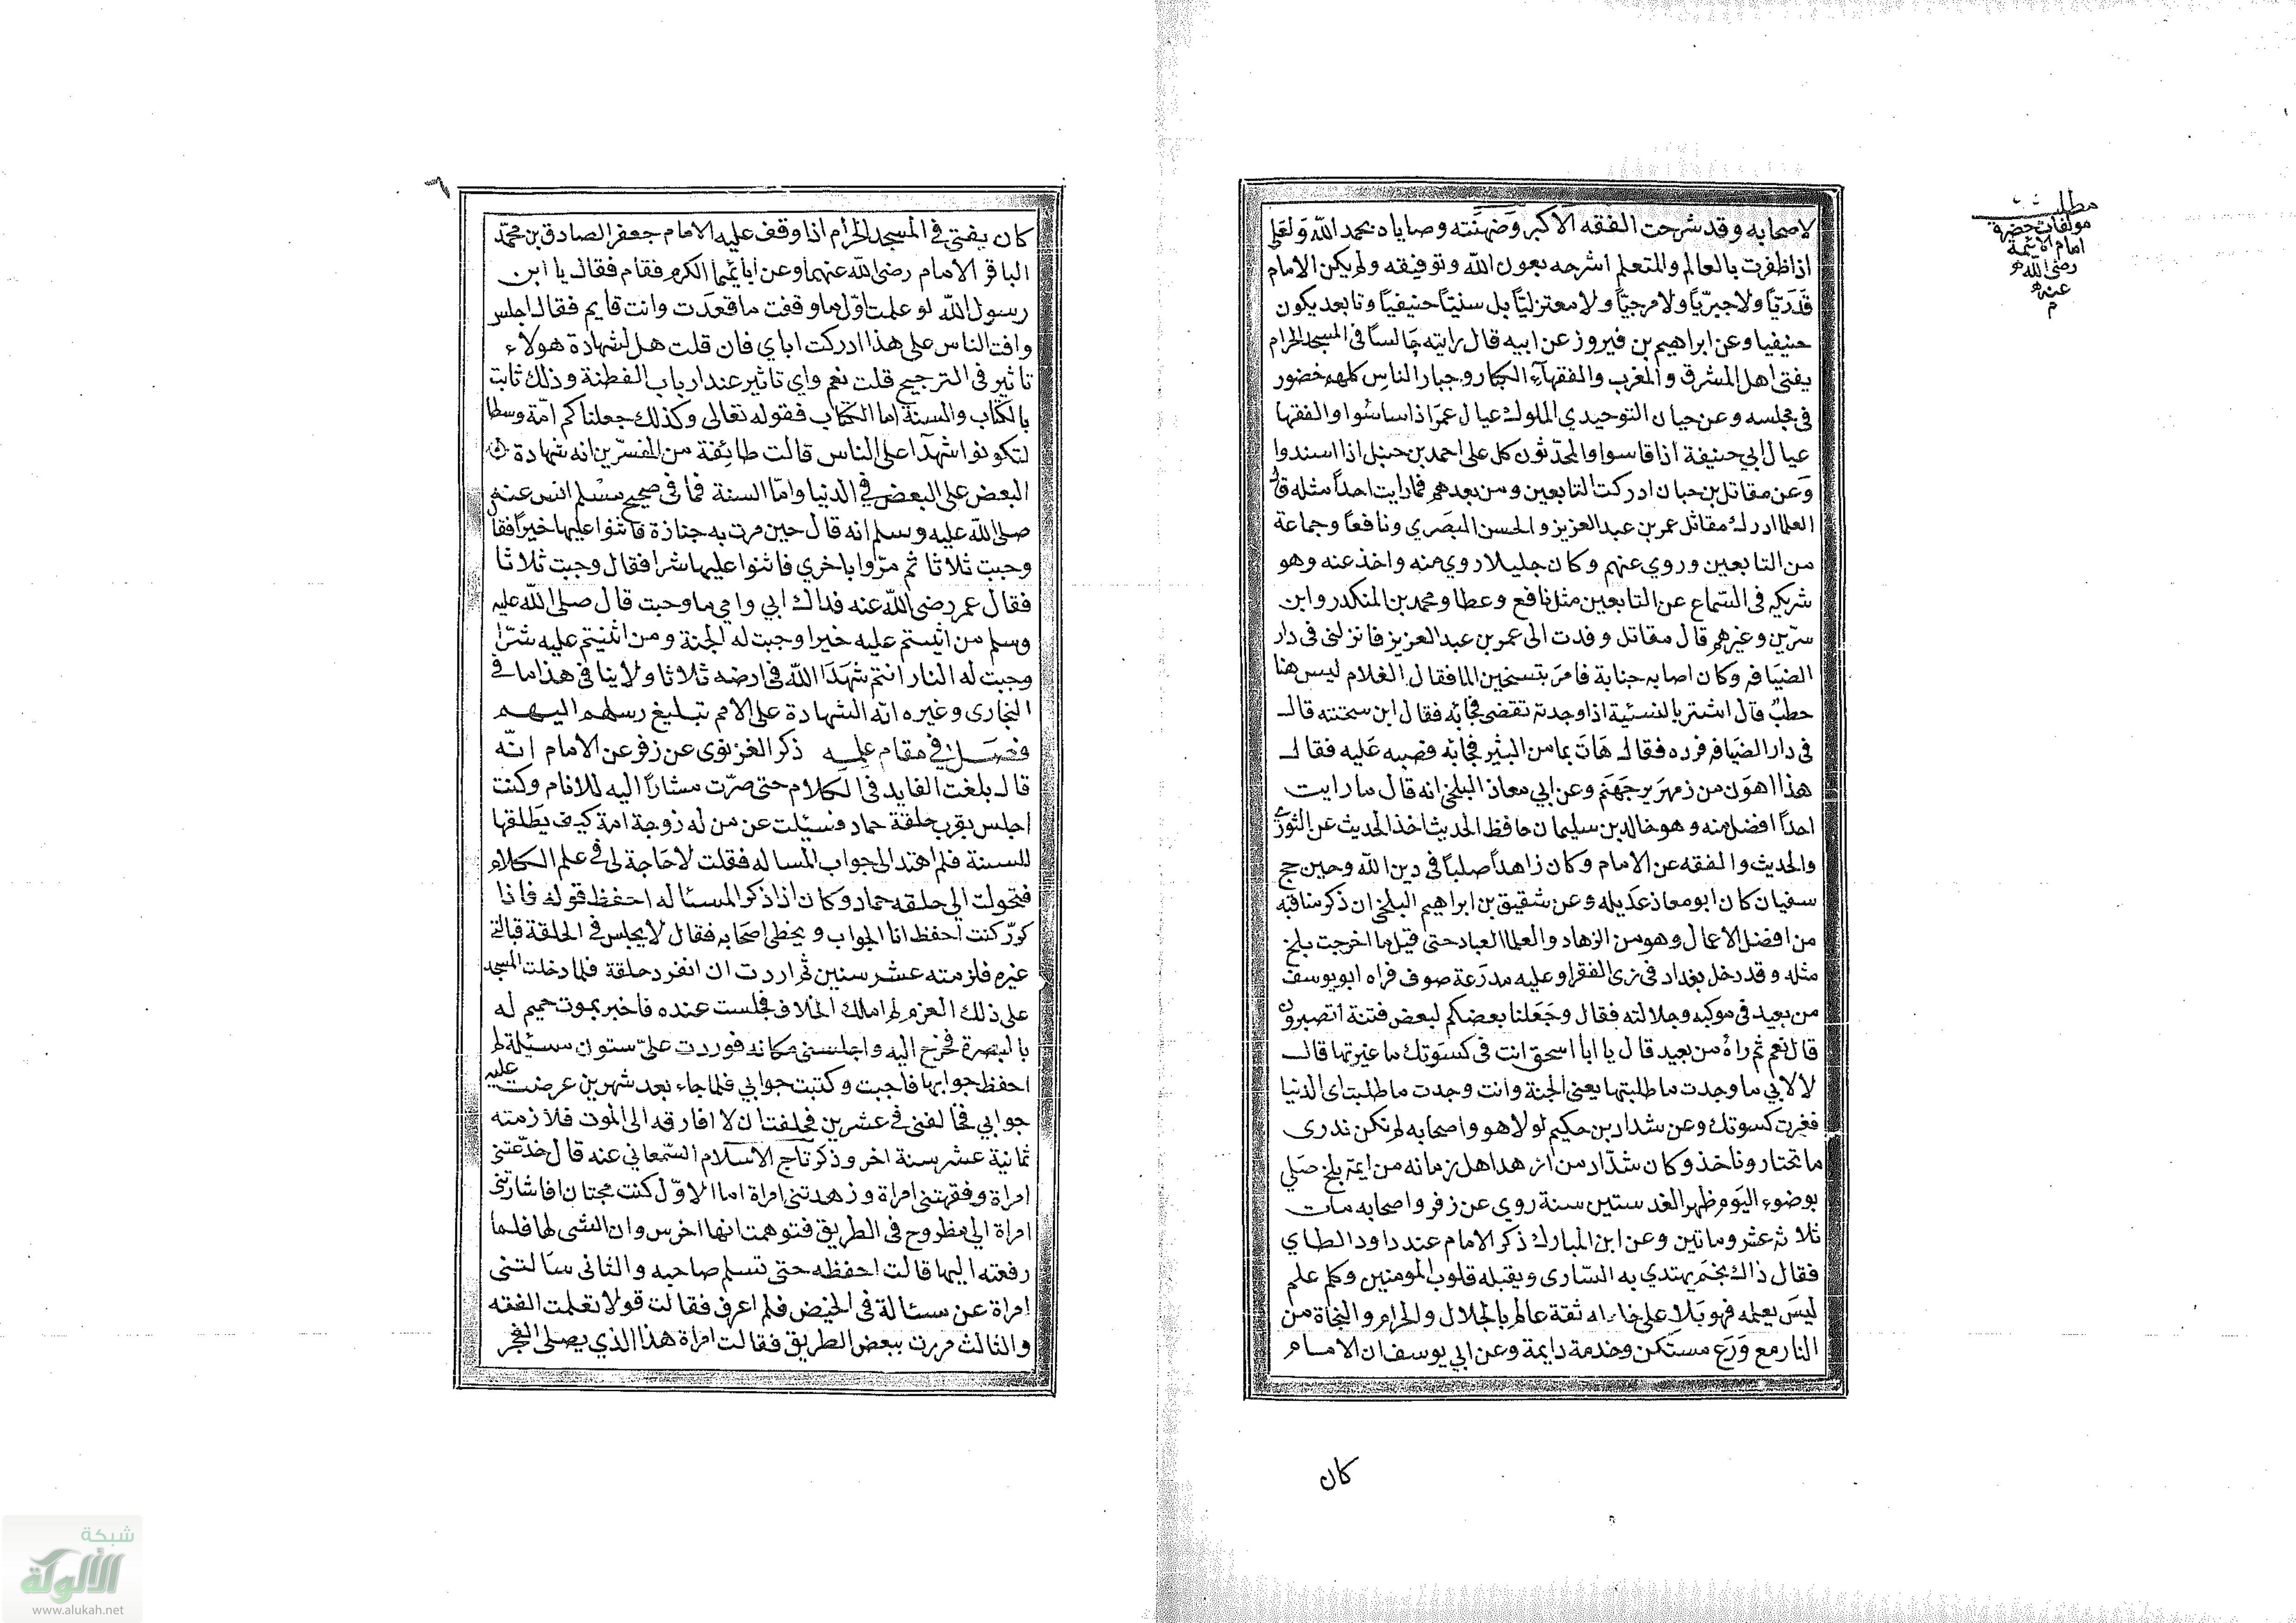 مطلب
مولفات حضرة
امام الائمة
رضى الله
عنه
م
لاصحابه وقد شرحت الفقه الاكبر وضمنته وصاياه بحمد الله ولعلي
اذا ظفرت بالعالم والمتعلم اشرحه بعون الله وتوفيقه ولم يكن الامام
قدريا ولا جبريا ولا مرجيا ولا معتزليا بل سنيا حنيفيا وتابعه يكون
حنيفيا وعن ابراهيم بن فيروز عن ابيه قال رايته جالسا في المسجد الحرام
يفتي اهل المشرق والمغرب والفقهاء الكبار وخيار الناس كلهم حضور
في مجلسه وعن حيان التوحيدي الملوك عيال عمر اذا ساسوا والفقها
عيال ابي حنيفة اذا قاسوا والمحدثون كل على احمد بن حنبل اذا اسندوا
وعن مقاتل بن حبان ادركت التابعين ومن بعدهم فما رايت احدا مثله قال
العلما ادرك مقاتل عمر بن عبد العزيز والحسن البصري ونافعا وجماعة
من التابعين وروي عنهم وكان جليلا روي عنه واخذ عنه وهو
شريكه في السماع عن التابعين مثل نافع وعطا ومحمد بن المنكدر وابن
سرين وغيرهم قال مقاتل وفدت الى عمر بن عبد العزيز فانزلني في دار
الضيافه وكان اصابه جنابة فامر بتسخين الما فقال الغلام ليس هنا
حطب قال اشتر بالنسئية اذا وجدته تقضى فجا به فقال اين سخنته قال
في دار الضيافه فرده فقال هات بما من البئر فجا به فصبه عليه فقال
هذا اهون من زمهرير جهنم وعن ابي معاذ البلخي انه قال ما رايت
احدا افضل منه وهو خالد بن سليمان حافظ الحديث اخذ الحديث عن الثوري
والحديث والفقه عن الامام وكان زاهدا صلبا في دين الله وحين حج
سفيان كان ابو معاذ عديله وعن شقيق بن ابراهيم البلخي ان ذكر مناقبه
من افضل الاعمال وهو من الزهاد والعلما العباد حتى قيل ما اخرجت بلخ
مثله وقد دخل بغداد في زى الفقرا وعليه مدرعة صوف فراه ابو يوسف
من بعيد في موكبه وجلالته فقال وجعلنا بعضكم لبعض فتنة اتصبرون
قال نعم ثم راه من بعيد قال يا ابا اسحق انت في كسوتك ما غيرتها قال
لا لاني ما وجدت ما طلبتها يعني الجنة وانت وجدت ما طلبت اى الدنيا
فغيرت كسوتك وعن شداد بن حكيم لولا هو واصحابه لم نكن ندرى
ما نختار وناخذ وكان شداد من ازهد اهل زمانه من ايمة بلخ صلي
بوضوء اليوم ظهر الغد ستين سنة روي عن زفر واصحابه مات
ثلاثة عشر وماتين وعن ابن المبارك ذكر الامام عند داود الطاي
فقال ذاك نجم يهتدي به السارى ويقبله قلوب المومنين وكل علم
ليس يعلمه فهو بلا على ثقة عالم بالحلال والحرام والنجاة من
النار مع ورع مستكن وخدمة دايمة وعن ابي يوسف ان الامام
كان
٦
كان يفتي في المسجد الحرام اذا وقف عليه الامام جعفر الصادق بن محمد
الباقر الامام رضى الله عنهما وعن ابائهما الكرم فقام فقال يا ابن
رسول الله لو علمت اول ما وقفت ما قعدت وانت قايم فقال اجلس
وافت الناس على هذا ادركت اباي فان قلت هل لشهادة هولاء
تاثير في الترجيح قلت نعم واي تاثير عند ارباب الفطنة وذلك ثابت
بالكتاب والسنة اما الكتاب فقوله تعالى وكذلك جعلناكم امة وسطا
لتكونوا شهدا على الناس قالت طائفة من المفسرين انه شهادة
البعض على البعض في الدنيا واما السنة فما في صحيح مسلم انس عنه
صلى الله عليه وسلم انه قال حين مرت به جنازة فاثنوا عليها خيرا فقال
وجبت ثلاثا ثم مروا باخري فاثنوا عليها شرا فقال وجبت ثلاثا
فقال عمر رضى الله عنه فداك ابي وامي ما وجبت قال صلى الله عليه
وسلم من اثنيتم عليه خيرا وجبت له الجنة ومن اثنيتم عليه شرا
وجبت له النار انتم شهدا الله في ارضه ثلاثا ولا ينافي هذا ما في
البخارى وغيره انه الشهادة على الامم بتبليغ رسلهم اليهم
فصل في مقام علمه ذكر الغزنوى عن زفر عن الامام انه
قال بلغت الغايه في الكلام حتى صرت مشارا اليه للانام وكنت
اجلس بقرب حلقة حماد فسئلت عن من له زوجة امة كيف يطلقها
للسنة فلم اهتد الى جواب المساله فقلت لا حاجة لي في علم الكلام
فتحولت الى حلقه حماد وكان اذا ذكر المسئاله احفظ قوله فاذا
كرر كنت احفظ انا الجواب ويخطى اصحابه فقال لا يجلس في الحلقة قبالتي
غيره فلزمته عشر سنين ثم اردت ان انفرد حلقة فلما دخلت المسجد
على ذلك العزم لم املك الخلاف فجلست عنده فاخبر بموت حميم له
بالبصرة فخرج اليه واجلسني مكانه فوردت علي ستون مسئلة لم
احفظ جوابها فاجبت وكتبت جوابي فلما جاء بعد شهرين عرضت عليه
جوابي فخالفني في عشرين فحلفت ان لا افارقه الى الموت فلازمته
ثمانية عشر سنة اخر وذكر تاج الاسلام السمعاني عنه قال خدعتني
امراة وفقهتني امراة وزهدتني امراة اما الاول كنت مجتازا فاشارتني
امراة الي مطروح في الطريق فتوهمت انها اخرس وان الشى لها فلما
رفعته اليها قالت احفظه حتى تسلم صاحبه والثاني سالتني
امراة عن مسئالة في الحيض فلم اعرف فقالت قولا تعلمت الفقه
والثالث مررت ببعض الطريق فقالت امراة هذا الذي يصلى الفجر
شبكة
الألوكة
www.alukah.net